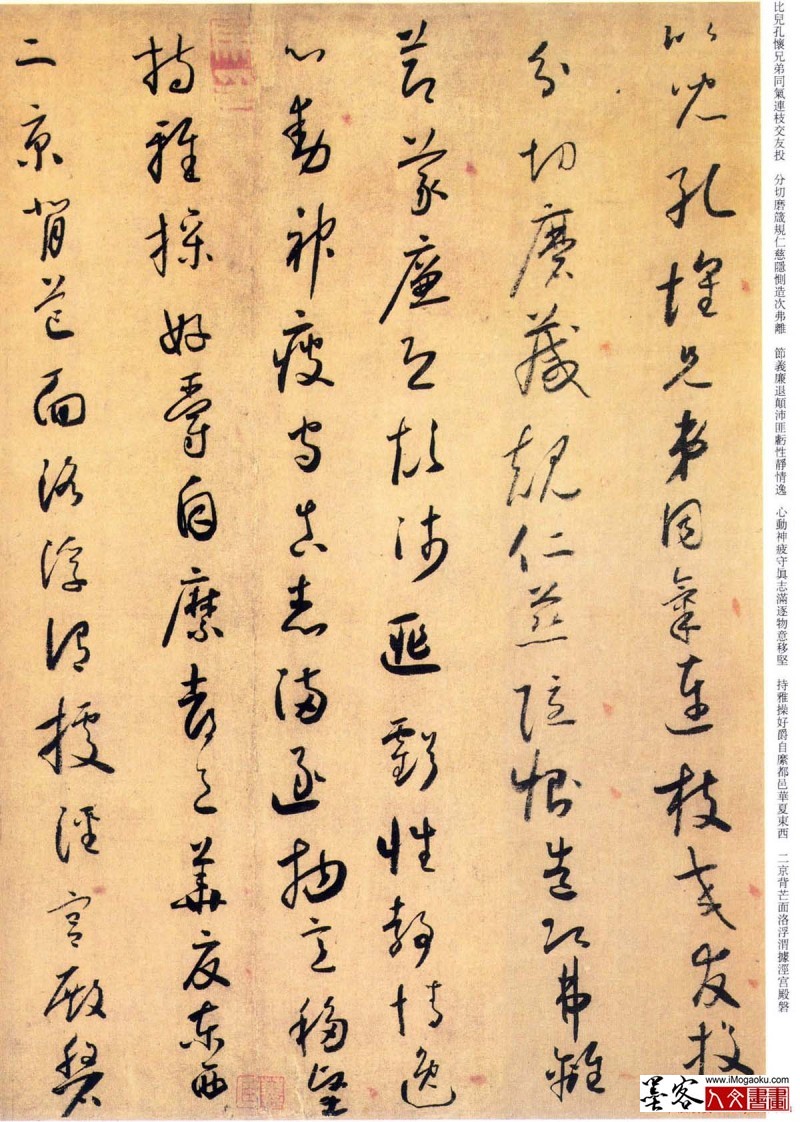 比兒孔懷兄弟同氣連枝交友投　分切磨箴規仁慈隱惻造次弗離　節義廉退顛沛匪虧性靜情逸　心動神疲守眞志滿逐物意移堅　持雅操好爵自縻都邑華夏東西　二京背芒面洛浮渭據涇宮殿磐
比兒孔懷兄弟同氣連枝交友投
分切磨箴規仁慈隱惻造次弗離
節義廉退顛沛匪虧性靜情逸
心動神疲守真志滿逐物意移堅
持雅操好爵自縻都邑華夏東西
二京背芒面洛浮渭據涇宮殿磐
www.iMogaoku.com
墨客 人文書畫